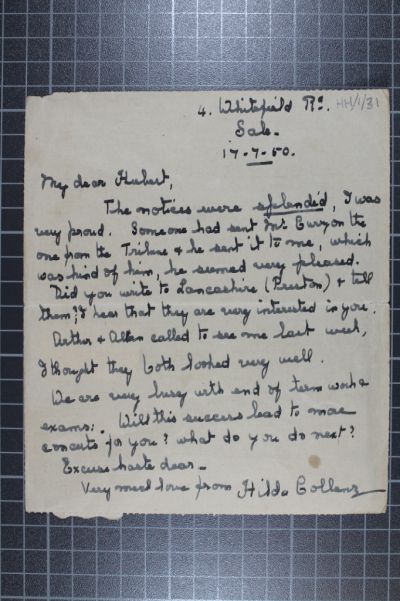 4. Whitefield Rd. HH/1/31
Sale.
17-7-50.
My dear Hubert,
The notices were splendid, I was
very proud. Someone had sent Mr. Curzon the
one from the Tribune & he sent it to me, which
was kind of him, he seemed very pleased.
Did you write to Lancashire (Preston) & tell
them? I hear that they are very interested in you.
Arthur & Allan called to see me last week,
I thought they both looked very well.
We are very busy with end of term work &
exams. Will this success lead to more
concerts for you? What do you do next?
Excuse haste dear -
Very much love from Hilda Collens